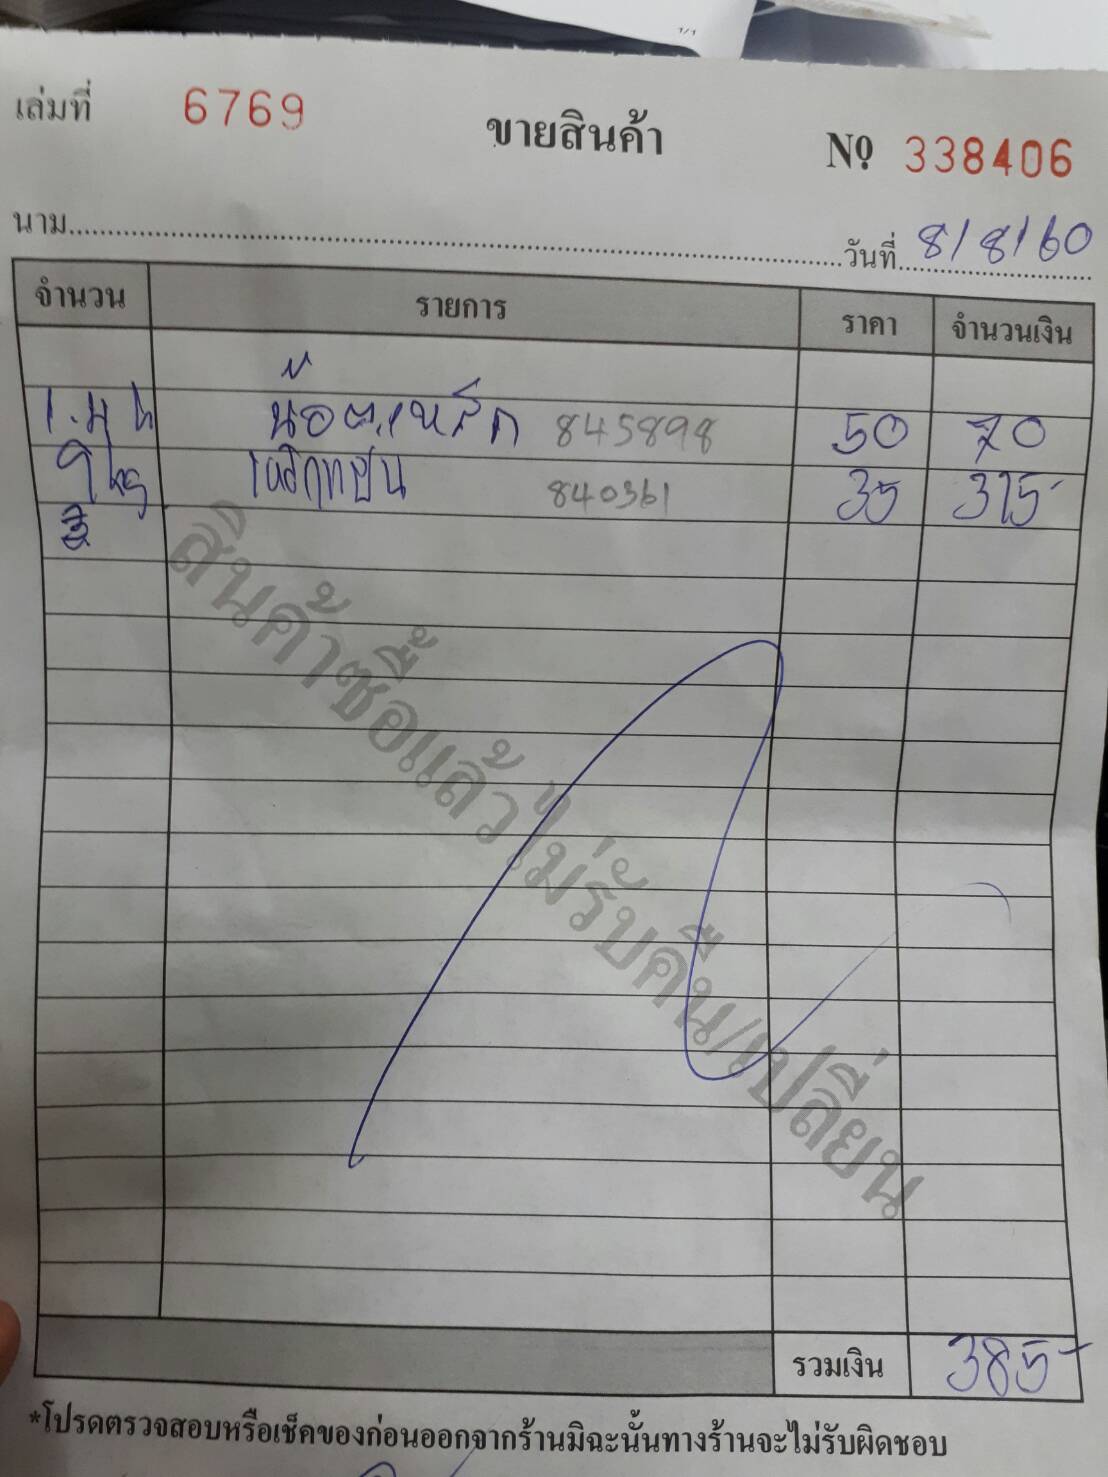 1/1
เล่มที่ 6769
ขายสินค้า
Nọ 338406
นาม
วันที่ 8/8/60
จำนวน รายการ ราคา จำนวนเงิน
น๊อตเหล็ก 845898 50 70
เหล็ก 840361 35 315-
สินค้าซื้อแล้วไม่รับคืน/เปลี่ยน
รวมเงิน 385-
*โปรดตรวจสอบหรือเช็คของก่อนออกจากร้านมิฉะนั้นทางร้านจะไม่รับผิดชอบ